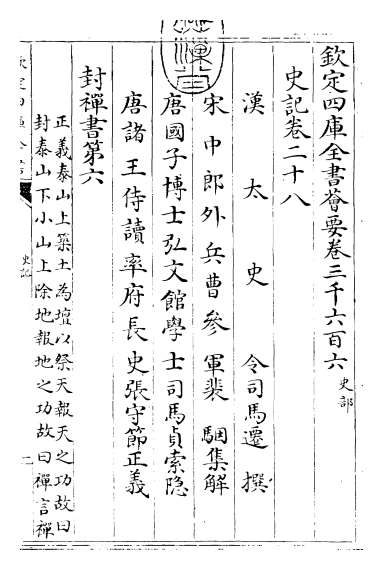 欽定四庫全書薈要卷三千六百六 史部
史記卷二十八
漢太史令司馬遷撰
宋中郎外兵曹參軍裴駰集解
唐國子博士弘文館學士司馬貞索隐
唐諸王侍讀率府長史張守節正義
封禪書第六
正義泰山上築土為壇以祭天報天之功故曰
封泰山下小山上除地報地之功故曰禪言禪
史記